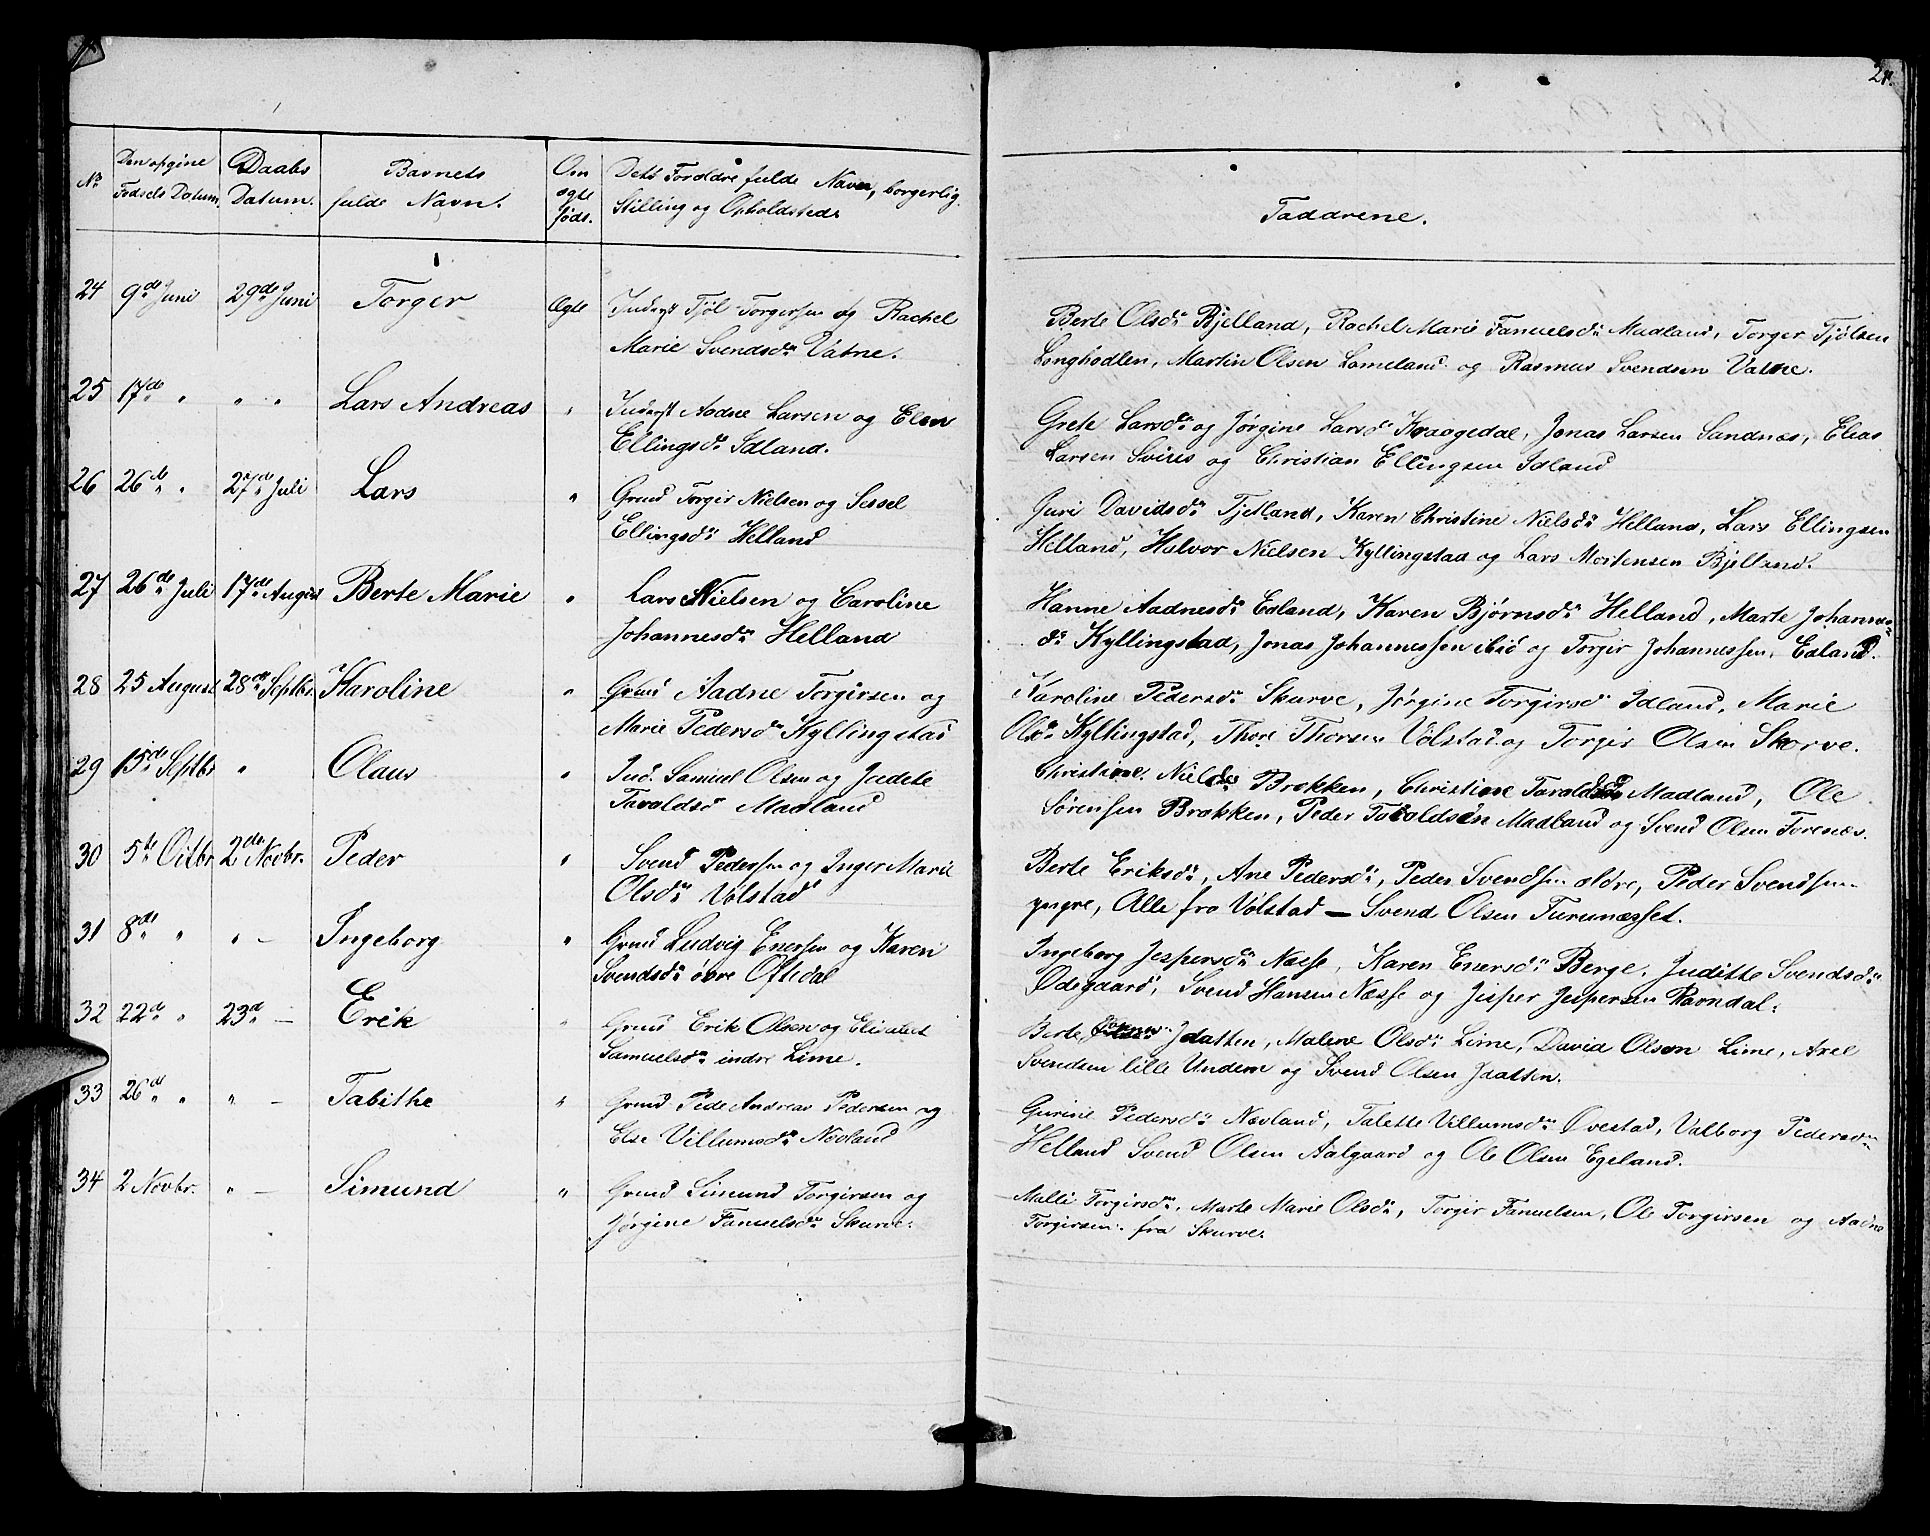 21.
No
Den opgine Fødsels Datum.
Daabs Datum.
Barnets fulde Navn.
Om ægte føds.
Dets Forældre fulde Navn, borgerlig Stilling og Opholdsted.
Faddrene.
24 9de Juni 29de Juni Torger Ægte Inderst Tjöl Torgersen og Rachel
Marie Svendsdr Vatne.
Berte Olsdr Bjelland, Rachel Marie Famuelsdr Madland, Torger Tjölsen
Longhodlen, Martin Olsen Lomeland og Rasmus Svendsen Vatne.
25 17de " " " Lars Andreas " Inderst Aadne Larsen og Elen
Ellingsdr Idland.
Grete Larsdr og Jørgine Larsdr Kraagedal, Jonas Larsen Sandnes, Elias
Larsen Svires og Christian Ellingsen Idland
26 26de " 27de Juli Lars " Grmd Torgir Nielsen og Sessel
Ellingsdr Helland
Guri Davidsdr Tjetland, Karen Christine Nielsdr Helland, Lars Ellingsen
Helland, Halvor Nielsen Kyllingstad og Lars Mortensen Bjelland.
27 26de Juli 17de August Berte Marie " Lars Nielsen og Caroline
Johannesdr Helland
Hanne Aadnesdr Edland, Karen Bjørnsdr Helland, Marte Johannes-
dr Kyllingstad, Jonas Johannessen ibid og Torgir Johannessen, Edland.
28 25 August 28de Septbr. Karoline " Grmd Aadne Torgirsen og
Marie Pedersdr Kyllingstad
Karoline Pedersdr Skurve, Jørgine Torgirsd Idland, Marie
Olsdr Kyllingstad, Thore Thorsen Völstad og Torgir Olsen Skorve.
29 15de Septbr " Olaus " Ind. Samuel Olsen og Judete
Tavaldsd Madland
Christine Nielsdr Brekken, Christine Tavaldsd Madland, Ole
Sørensen Brekken, Peder Tavaldsen Madland og Svend Olsen Torenæs.
30 5te Octbr 2de Novbr. Peder " Svend Pedersen og Inger Marie
Olsdr Völstad
Berte Eriksdr, Ane Pedersdr, Peder Svendsen eldre, Peder Svendsen
yngre, Alle fra Völstad — Svend Olsen Turunæsset.
31 8de " " – Ingeborg " Grmd Ludvig Enersen og Karen
Svendsdr øvre Oftedal
Ingeborg Jespersdr Næsse, Karen Enersdr Berge, Juditte Svendsdr
Ødegaard, Svend Hansen Næsse og Jesper Jespersen Ravndal.
32 22de " 23d — Erik " Grmd Erik Olsen og Elisabet
Samuelsdr indre Lime.
Berte Jdatten, Malene Olsdr Lime, David Olsen Lime, Axel
Svendsen lille Undem og Svend Olsen Jdatten.
33 26de " " — Tabithe " Grmd Pede Andreas Pedersen og
Else Villumsdr Nevland
Gurine Pedersdr Nævland, Talette Villumsdr Övestad, Valborg Pedersdr
Helland Svend Olsen Aalgaard og Ole Olsen Egeland.
34 2 Novbr. " — Simund " Grmd Simund Torgirsen og
Jørgine Famuelsdr Skurve.
Malli Torgirsdr, Marte Marie Olsdr, Torgir Famuelsen, Ole Torgirsen og Aadne
Torgirsen fra Skurve.